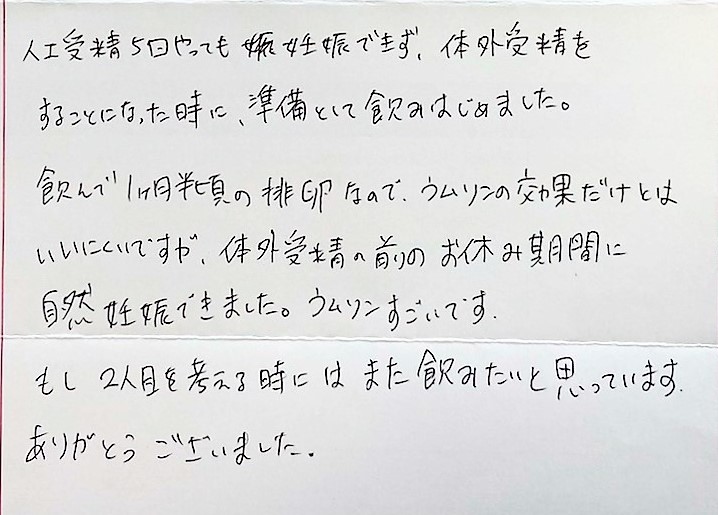 人工受精5回やっても妊娠できず、体外受精を
することになった時に、準備として飲みはじめました。
飲んで1ヶ月半頃の排卵なので、ウムリンの効果だけとは
いいにくいですが、体外受精の前のお休み期間に
自然妊娠できました。ウムリンすごいです.
もし2人目を考える時にはまた飲みたいと思っています.
ありがとうございました.